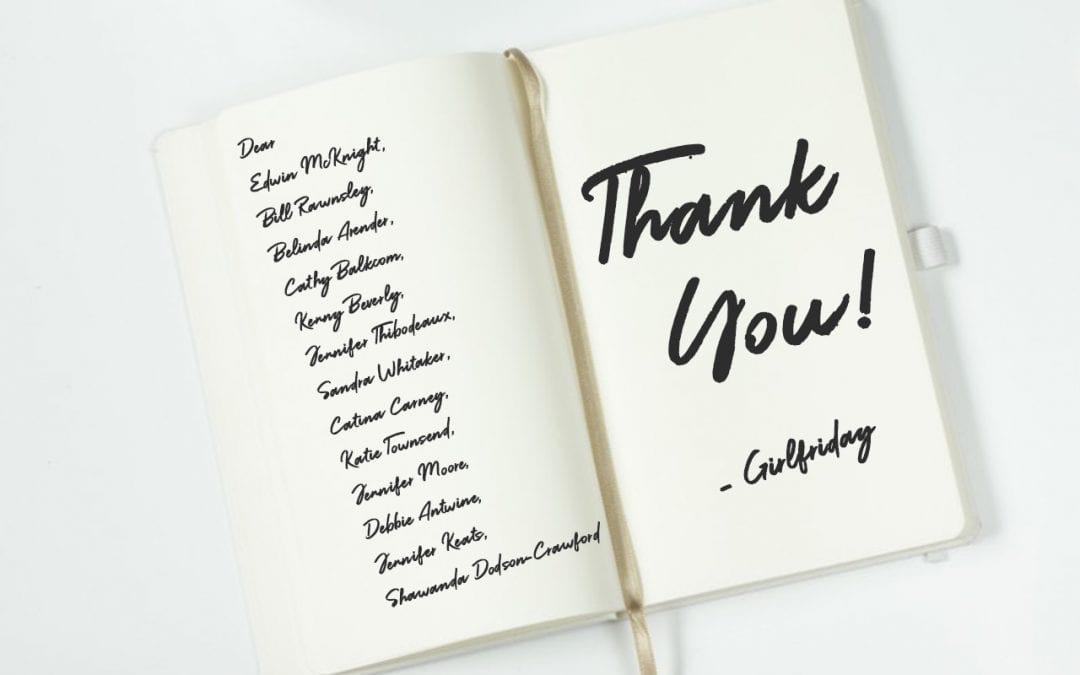 Dear
Edwin McKnight,
Bill Rawnsley,
Belinda Arender,
Cathy Balkcom,
Kenny Beverly,
Jennifer Thibodeaux,
Sandra Whitaker,
Catina Carney,
Katie Townsend,
Jennifer Moore,
Debbie Antwine,
Jennifer Keats,
Shawanda Dodson-Crawford
Thank
You!
- Girlfriday